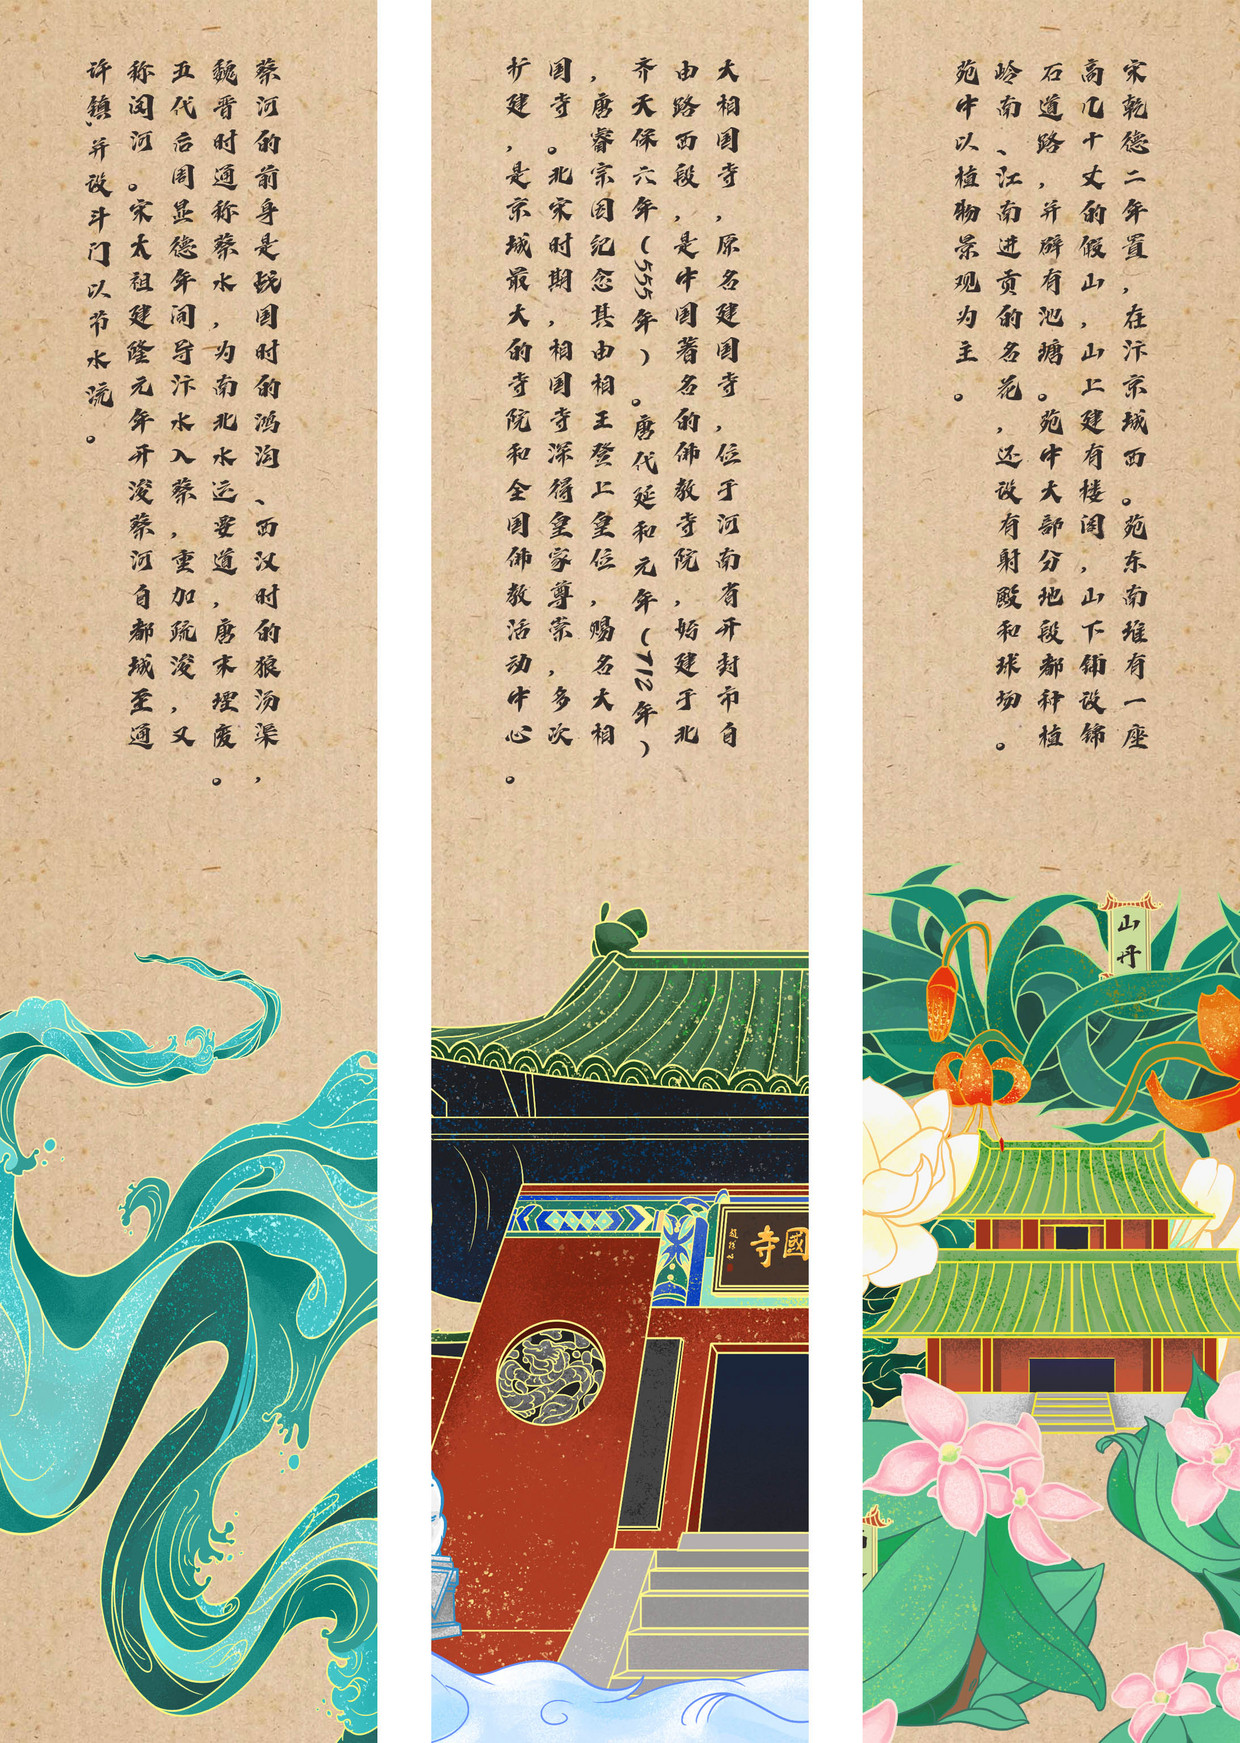 蔡河的前身是战国时的鸿沟、西汉时的狼汤渠，
魏晋时通称蔡水，为南北水运要道，唐末理废。
五代后周显德年间导汴水入蔡，重加疏浚，又
称闵河。宋太祖建隆元年开浚蔡河自都城至通
许镇,并设斗门以节水流。
大相国寺，原名建国寺，位于河南省开封市自
由路西段，是中国著名的佛教寺院，始建于北
齐天保六年(555年)。唐代延和元年(712年)
，唐睿宗因纪念其由相王登上皇位，赐名大相
国寺。北宋时期，相国寺深得皇家尊崇，多次
扩建，是京城最大的寺院和全国佛教活动中心。
國寺
宋乾德二年置，在汴京城西。苑东南堆有一座
高几十丈的假山，山上建有楼阁，山下铺设锦
石道路，并辟有池塘。苑中大部分地段都种植
岭南、江南进贡的名花，还设有射殿和球场。
苑中以植物景观为主。
山丹